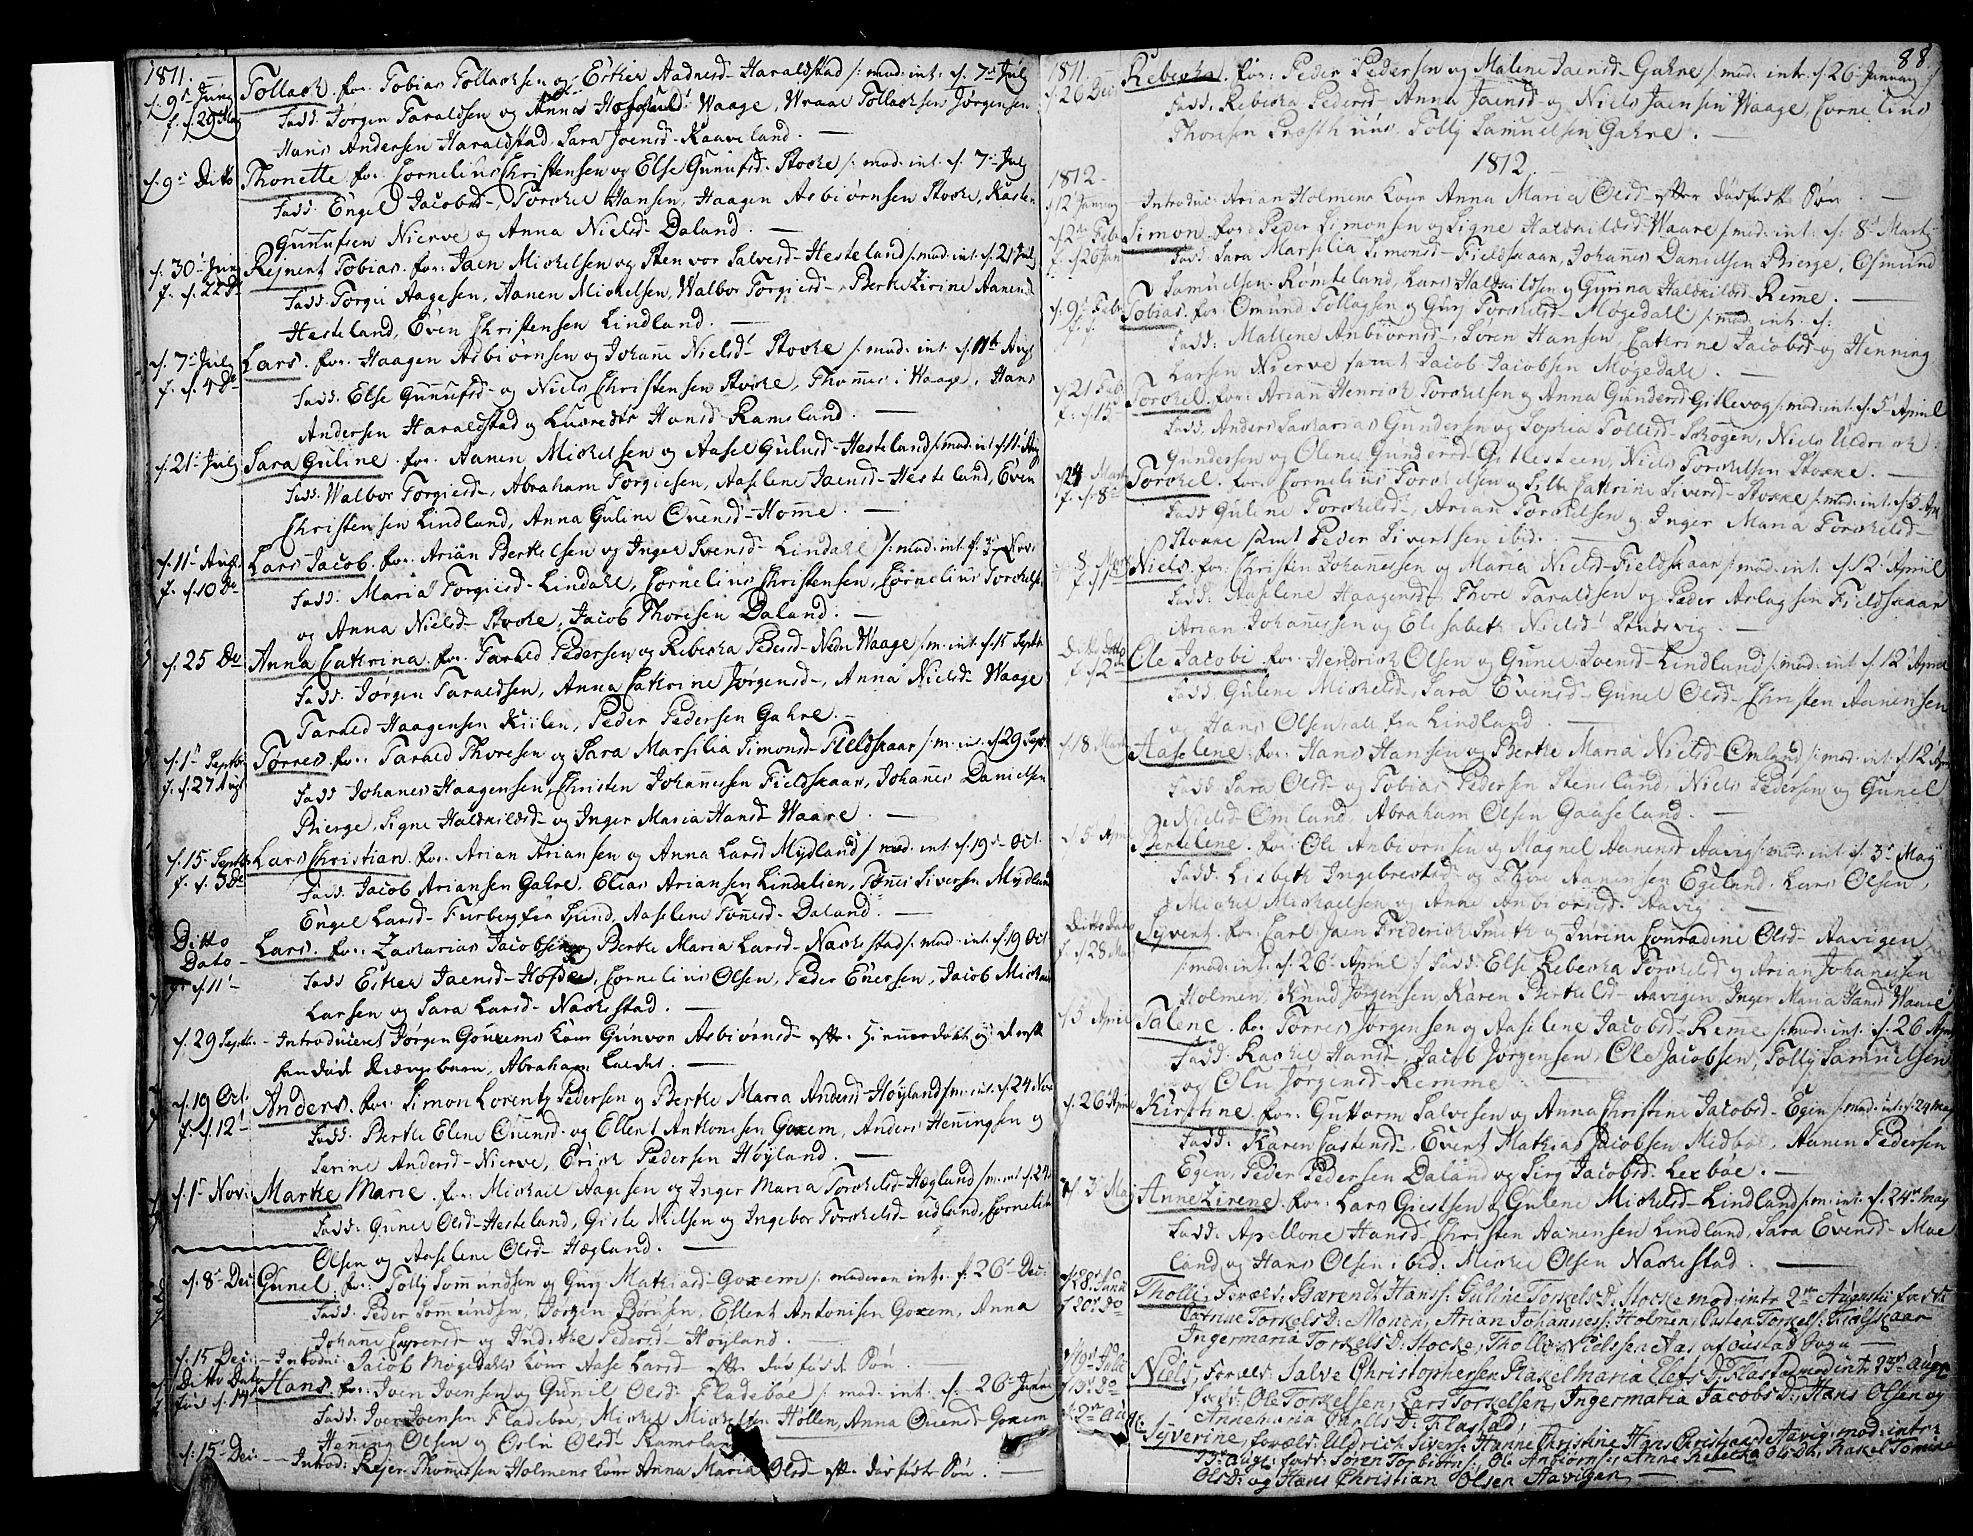 1811.
d. 9d Junij Tollach. for. Tobias Tollachsen og Esther Aadnesd- Haraldstad /: mod: int: d. 7d Julj
f. d. 29 Maij Fadd: Jørgen Taraldsen og Waage, Wraal Tollachsen Jørgensen
Hans Andersen Haraldstad, Sara Joensd- Kaaveland. —
d. 9d Ditto Thonette. for. Cornelius Christensen og Else Gunufsd- Stocke /: mod: int. d. 7d Julj
Fadd: Engel Jacobsd-, Torchel Hansen, Haagen Asbiørnsen Stocke, Karsten
Gunnufsen Nierve og Anna Nielsd- Daland. —
d. 30d Junj Rejnert Tobias. for. Jaen Michelsen og Stenvor Salvesd- Hesteland /: mod: int: d. 21 Julj
f. d. 22de Fadd: Torgii Aagesen, Aanen Michelsen, Walbor Torgiersd- Berte Lirine Aanensd
Hesteland, Even Christensen Lindland. —
d. 7d Julj Lars. for. Haagen Asbiørnsen og Johanne Nielsd- Stocke /: mod: int. d. 11te Aug
f. d. 4de Fadd: Else Gunufsd- og Niels Christensen Stocke, Thommes i Waage, Hans
Andersen Haraldstad og Hansd- Ramsland. —
d. 21d Julj Sara Guline. for. Aanen Michelsen og Aasel Gulusd- Hesteland /: mod: int d. 11d Aug
Fadd: Walbor Torgiersd-, Abraham Torgiesen, Aaselene Jaensd- Hesteland, Even
Christensen Lindland, Anna Guline Ouensd- Homme. —
d. 11d Aug. Lars Jacob. for. Arian Berthelsen og Inger Svensd- Lindahl /: mod: int. d. 3d Nov:
f. d. 10 de Fadd: Maria Torgiesd- Lindahl, Cornelius Christensen, Cornelius Torchels:
og Anna Nielsd- Stocke, Jacob Thoresen Daland. —
d. 25 de Anna Cathrina. for. Tarald Pedersen og Rebecka Pedersd- Nedr Waage /: m: int. d. 15 Septb
Fadd: Jørgen Taraldsen, Anna Cathrine Jørgensd-, Anna Nielsd- Waage
Tarald Haagensen Kiilen, Peder Pedersen Gahre. —
d. 1d Septbr Torres. for: Tarald Thoresen og Sara Marsilia Simonsd- Fieldskaar /: m: int. d. 29 Sept:
f. d. 27 Aug Fadd Johanes Haagensen, Christen Johannesen Fieldskaar, Johannes Danielsen
Bierge, Signe Haldkildsd- og Inger Maria Hansd- Waare. —
d. 15 Septb: Lars Christian. for. Arian Ariansen og Anna Larsd Mydland /: mod: int. d. 19d Oct.
f. d. 3de Fadd: Jacob Ariansen Gahre, Elias Ariansen Lindelien, Tønnes Siversen Mydland
Engel Larsd- Furberg fra Lund, Aaselene Tønesd- Daland. —
Ditto Dato Lars. for. Zacharias Jacobsen og Berthe Maria Larsd- Nachestad /: mod: int. d. 19 Oct
f. d. 11d Fadd Esther Jaensd- Høfde, Cornelius Olsen, Peder Enersen, Jacob Michael
Larsen og Sara Larsd- Nachestad. —
d. 29 Septb: — Introduceret Jørgen Goxems Kone Gunvor Asbiørnsd- efter hiemmedøbt og derefter
hendøde Drengebarn, Abraham kaldet. —
d. 19 Oct. Anders. for. Simon Lorentz Pedersen og Berthe Maria Andersd- Høyland /: m: int. d. 24 Nov
f. d. 12d Fadd: Berthe Elene Ouensd- og Ellert Anthonisen Goxem, Anders Henningsen og
Serine Andersd- Nierve, Erich Pedersen Høyland. —
d. 1d Nov: Marthe Marie. for. Michael Aagesen og Inger Maria Torchelsd- Hægland /: m: int d. 24
Fadd: Gunel Olsd- Hesteland, Gitle Nielsen og Ingebor Torchelsd- Udland, Cornelius
Olsen og Aaselene Olsd- Hægland. —
d. 8d Dec: Gunel. for. Tolly Somundsen og Gurj Mathiasd- Goxem /: moderen int: d. 26d Dec:
Fadd: Peder Somundsen, Jørgen Børusen, Ellert Antonisen Goxem, Anna
Johane og Pedersd- Høyland. —
d. 15 Dec: — Introdu: Jacob Møgedahls Kone Aase Larsd- efter dødfødt Søn. —
Ditto Dato Hans. for. Iver Ivensen og Gunil Olsd: Fladebøe /: mod: int. d. 26d Januarj
før d. 14 Fadd: Iver Ivensen Fladebøe, Michel Michelsen Hollen, Anna Ouensd- Goxem
Hening Olsen og Oslu Olsd- Ramsland
d. 15d Dec: — Introd: Rejer Thomesen Holmens Kone Anna Maria Olsd- efter dødfødt Søn. —
88
1811.
d. 26 Dec: Rebecka. for: Peder Pedersen og Malene Jaensd- Gahre /: mod: intr. d. 26d Januarij
Fadd: Rebecka Pedersd- Anna Jaensd- og Niels Jaensen Waage, Cornelius
Thoresen Præsthuus, Tolly Samuelsen Gahre. —
1812.
1812.
d. 12 Januarj — Introduc: Arian Holmens Kone Anna Maria Olsd- efter dødfødt Søn. —
d. 2den Feb: Simon. for. Peder Simonsen og Signe Haldkildsd- Waare /: mod: int. d. 8d Martj
f. d. 26 Jan Fadd: Sara Marsilia Simonsd- Fieldskaar, Johannes Danielsen Bierge, Osmund
Samuelsen Rømteland, Lars Haldkildsen og Gurina Haldkildsd- Reme. —
d. 9d Feb: Tobias. for. Omund Tollagsen og Gurj Torchelsd- Møgedahl /: mod: int: d:
Fadd: Mallene Anbiørnsd-, Søren Hansen, Cathrine Jacobsd- og Henning
Larsen Nierve samt Jacob Jacobsen Møgedahl —
d. 21 Feb Torchel. for: Arian Henrich Torchelsen og Anna Gundersd Gitlevog /: mod: int. d. 5d Apriil
f. d. 15d Fadd: Anders Sacharias Gundersen og Sophia Tollisd- Skogen, Niels Uldrich
Gundersen og Olene Gundersd Gitlesteen, Niels Torchelsen Stocke. —
d. 24 Martj Torchel. for. Cornelius Torchelsen og Sille Cathrine Siversd- Stocke /: mod: int: d. 5 Apr
f. d. 8de Fadd Gulene Torchelsd-, Arian Torchelsen og Inger Maria Torchelsd-
Stocke samt Peder Sivertsen ibid: —
d. 8 Martj Niels. for. Christen Johannesen og Maria Nielsd- Fieldskaar /: mod: int. d. 12d Apriil
Fadd: Aaselene Haagensd- Thore Taraldsen og Peder Aslagsen Fieldskaar
Arian Johannesen og Elisabeth Nielsd- Sandsvig —
Ditto dato Ole Jacob. for. Hendrich Olsen og Gunel Joensd- Lindland /: mod: int d. 12d Apriil
f. d. 2de Fadd. Gulene Michelsd-, Sara Evensd- Gunel Olsd- Christen Aanensen
og Hans Olsen alle fra Lindland —
d. 18 Martj Aaselene. for. Hans Hansen og Berthe Maria Nielsd- Omland /: mod: int. d. 12 Apr
Fadd: Sara Olsd- og Tobias Pedersen Stensland, Niels Pedersen og Gunel
Nielsd- Omland, Abraham Olsen Gaaseland. —
d. 5 April Bertelene. for. Ole Anbiørnsen og Magnel Aanensd Aavig /: mod: int. d. 3d Maij
Fadd: Lisbeth Ingebretsd- og Thore Aanensen Egeland. Lars Olsen,
Michel Michaelsen og Anne Anbiørnsd- Aavig. —
Ditto Dato Syvert. for. Carl Jaen Friderich Smith og Jurine Conradine Olsd- Aavigen
f. d. 28 Martj /: mod: int. d. 26d April :/ Fadd: Else Rebecka Torchelsd- og Arian Johannesen
Holmen, Knud Jørgensen, Karen Berthelsd- Aavigen, Inger Maria Hansd Waare
d. 5 April Talene. for. Torres Jørgensen og Aaselene Jacobsd- Reme /: mod: int: d. 26 Apr
Fadd: Rachel Hansd-, Jacob Jørgensen, Ole Jacobsen, Tolly Samuelsen
og Olu Jørgensd- Remme. —
d. 26 April Kirstine. for. Guttorm Salvesen og Anna Christine Jacobsd- Egen /: mod: int: d. 24 Maj
Fadd: Karen Carstensd- Event Mathias Jacobsen Midbøe, Aanen Pedersen
Egen, Peder Pedersen Daland og Siri Jacobsd- Lexbøe. —
d. 3d Maj Anne Lirene. for. Lars Gjestsen & Gulene Michelsd- Lindland /: m: int: d. 24de Maij
Fadd: Apellone Hansd- Christen Aanensen Lindland, Sara Evensd- Moe
land og Hans Olsen ibid: Michel Olsen Nachestad. —
d. 28d Junii Tholle, Foræld: Bærend Hanss: Guline TorkelsD: Stocke mod: intr. 2den Augusti fadd:
f 20d Do Catrine TorkelsD: Monen, Arian Johannes: Holmen, Casten Torkels: Fieldskaar
Ingermaria TorkelsD: Stocke, Tholle Nielssen Aas af Oustad Sogn —
d 19d Julii Niels, foræld: Salve Christophersen Rakelmaria ElefsD: Flastad mod: intr: 23d Aug:
f 13d Do fadd: Ole Torkelsen, Lars Torkelsen, Ingermaria JacobsD: Hans Olsen og
Annemaria D: Flastad: —
d: 2den Aug: Syverine, foræld: Uldrich Sivers: Hanne Christine Hans Aavig: mod: intr:
23d Aug: fadd: Søren Torbiørns:, Ole Anbiørns:, Anne Rebecka OlsD:, Rakel Tomine
OlsD: og Hans Christian Olsen Aavigen —